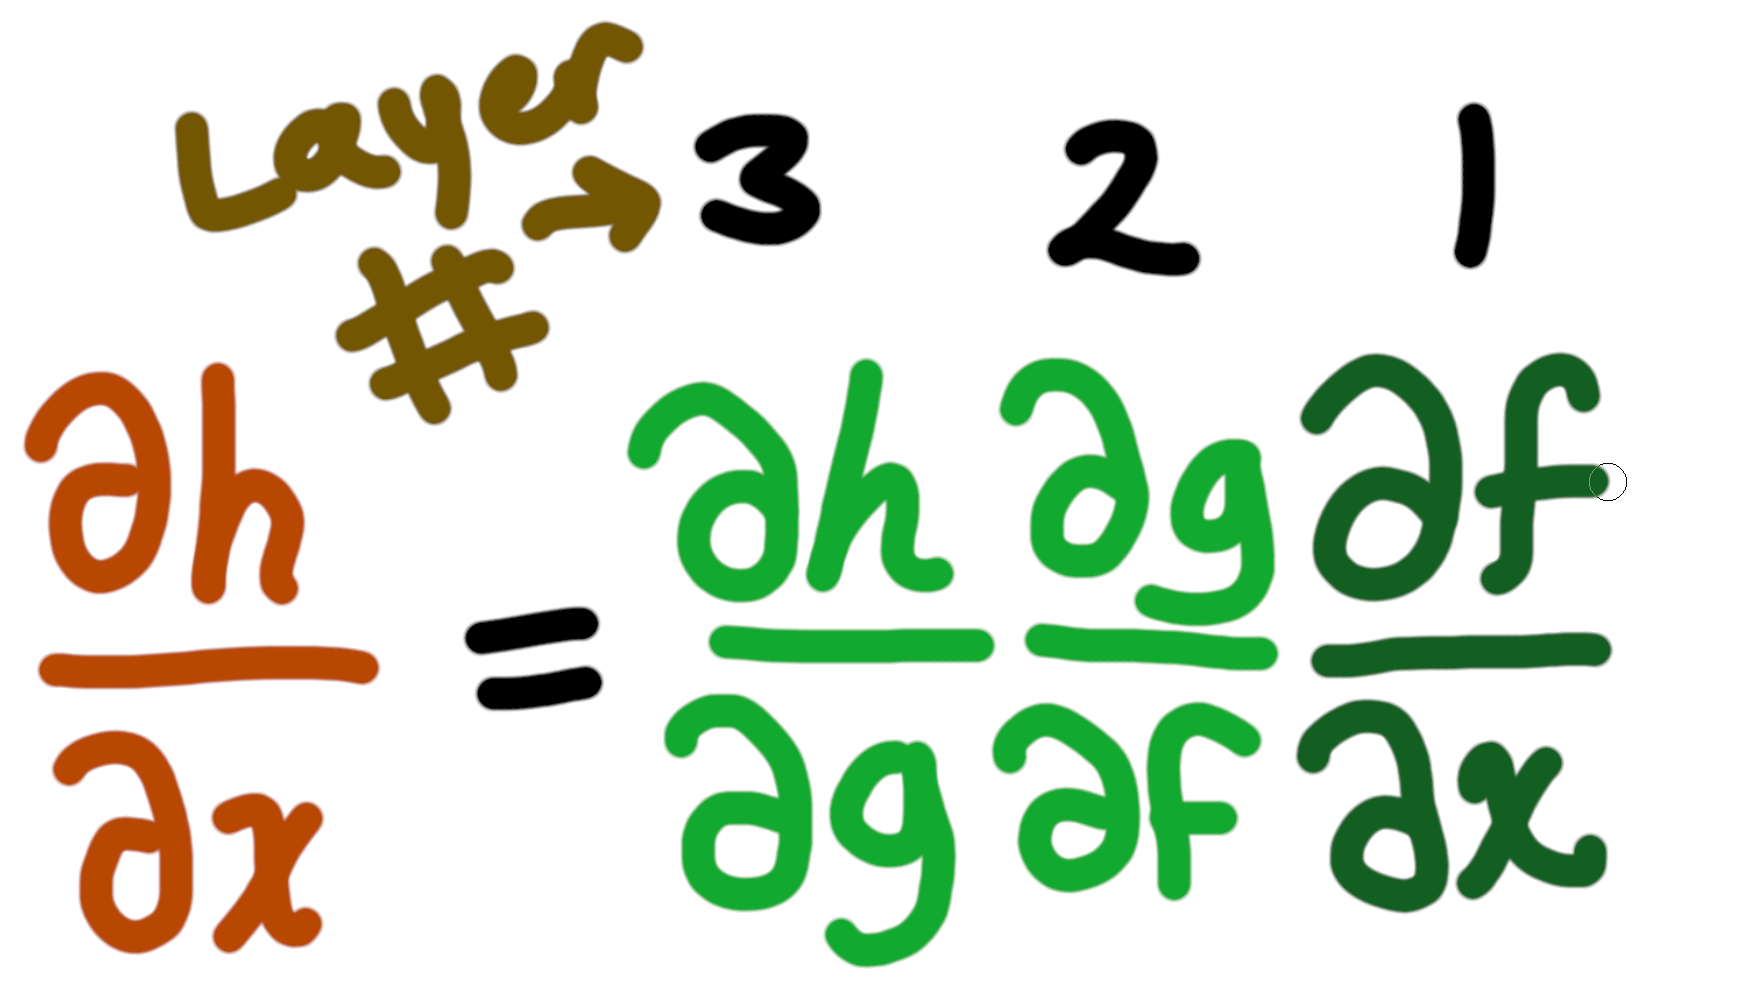 Layer # → 3 2 1
∂h/∂x = ∂h/∂g ∂g/∂f ∂f/∂x